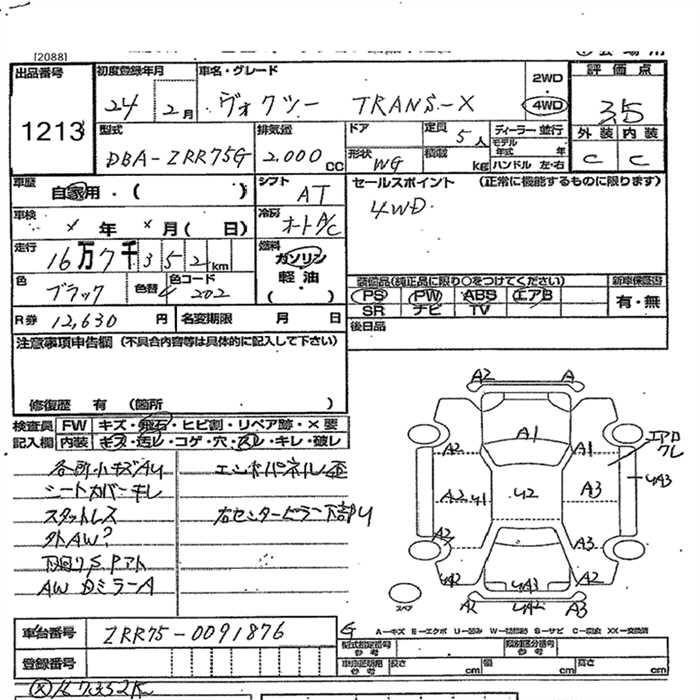 [2088]
出品番号 初度登録年月 車名・グレード 2WD 評価点
1213 24年2月 ヴォクシー TRANS-X 4WD 3.5
外装 内装
C C
型式 排気量 ドア 定員 5人 ディーラー 並行
DBA-ZRR75G 2.000CC 形状 WG 積載 kg モデル年式 年
ハンドル 左・右
車歴 自家用・( ) シフト AT セールスポイント (正常に機能するものに限ります)
4WD
車検 × 年 × 月 ( 日) 冷房 オートA/C
走行 16万7千352km 燃料 ガソリン 軽油 ( )
色 ブラック 色替 色コード 202
装備品(純正品に限り○をつけてください) 新車保証書
PS PW ABS エアB 有・無
SR ナビ TV
R券 12,630円 名変期限 月 日 後日品
注意事項申告欄 (不具合内容等は具体的に記入して下さい)
修復歴 有 (箇所 )
検査員 FW キズ・飛石・ヒビ割・リペア跡・×要
記入欄 内装 キズ・汚レ・コゲ・穴・スレ・キレ・破レ
各所小キズAU エンドパネル歪
シートカバーキレ
スタットレス 右センターピラー下部U
外AW?
AW Dミラー A
A2 A
A1
A2 A1 エアロワレ
A2 41 42 A3 4A3
A2 A3
4A2 4A3 A2
A2 4A2 A3
スペア
車台番号 ZRR75-0091876
登録番号
G A-キズ E-エクボ U-凹み S-サビ C-腐食 XX-交換済
型式指定番号 参考 類別区分番号 参考
長さ cm 幅 cm 高さ cm